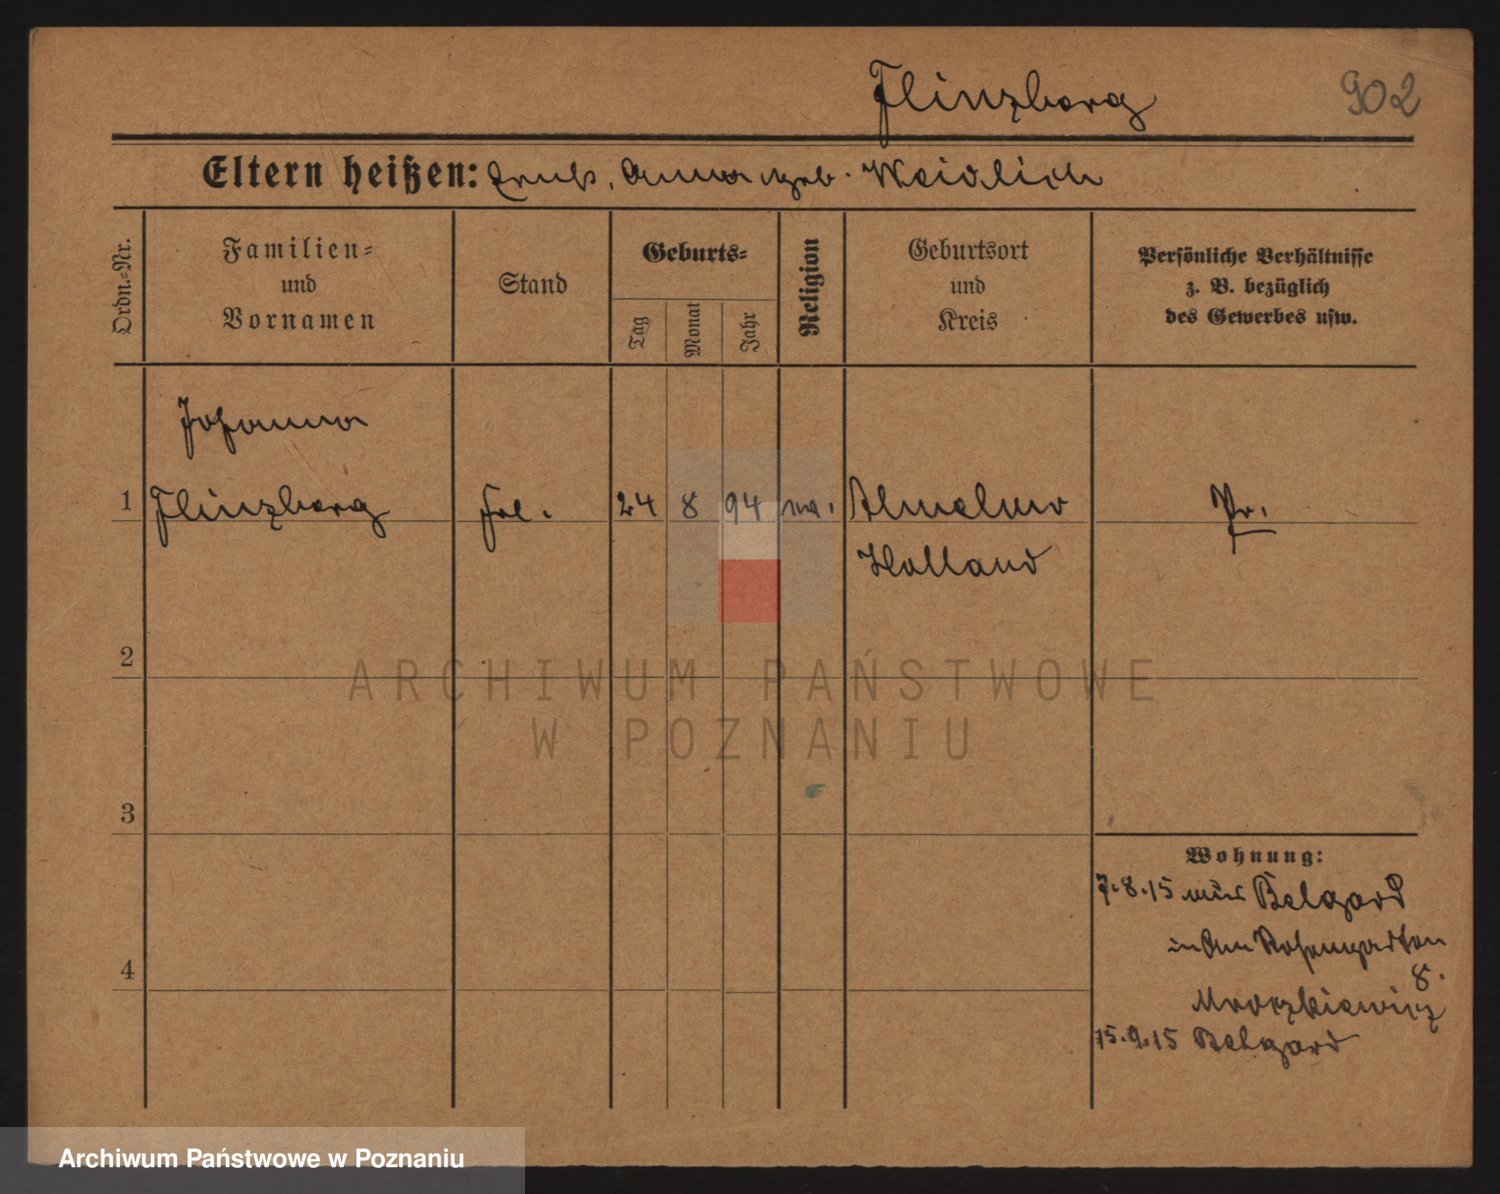 Flinzberg
902
Eltern heißen: Ernst, Anna geb. Weidlich
Ordn.-Nr.
Familien- und Vornamen
Stand
Geburts-
Tag
Monat
Jahr
Religion
Geburtsort und Kreis
Persönliche Verhältnisse z. B. bezüglich des Gewerbes usw.
Johanna
1 Flinzberg Frl. 24 8 94 Almelo Pr.
Holland
2
3
4
Wohnung:
7.8.15 aus Belgard
Rosengarten
8.
Mroczkiewicz
15.9.15 Belgard
ARCHIWUM PAŃSTWOWE
W POZNANIU
Archiwum Państwowe w Poznaniu